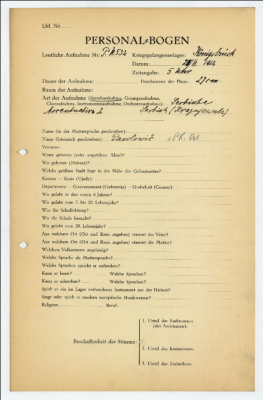 Lfd. Nr.
PERSONAL-BOGEN
Lautliche Aufnahme Nr.: PK 534 Kriegsgefangenenlager: Königsbrück
Datum:
Zeitangabe: 5 Uhr
Dauer der Aufnahme: Durchmesser der Platte: 27 cm
Raum der Aufnahme:
Art der Aufnahme (Sprechaufnahme, Gesangsaufnahme,
Choraufnahme, Instrumentenaufnahme, Orchesteraufnahme): Serbische
Serbisch
Name (in der Muttersprache geschrieben):
Name (lateinisch geschrieben):
Vorname:
Wann geboren (oder ungefähres Alter)?
Wo geboren (Heimat)?
Welche größere Stadt liegt in der Nähe des Geburtsortes?
Kanton — Kreis (Ujedz):
Departement — Gouvernement (Gubernija) — Grafschaft (County):
Wo gelebt in den ersten 6 Jahren?
Wo gelebt vom 7. bis 20. Lebensjahr?
Was für Schulbildung?
Wo die Schule besucht?
Wo gelebt vom 20. Lebensjahr?
Aus welchem Ort (Ort und Kreis angeben) stammt der Vater?
Aus welchem Ort (Ort und Kreis angeben) stammt die Mutter?
Welchem Volksstamm angehörig?
Welche Sprache als Muttersprache?
Welche Sprachen spricht er außerdem?
Kann er lesen? Welche Sprachen?
Kann er schreiben? Welche Sprachen?
Spielt er ein im Lager vorhandenes Instrument aus der Heimat?
Singt oder spielt er modern europäische Musikweisen?
Religion: Beruf:
Beschaffenheit der Stimme:
1. Urteil des Fachmannes
(des Assistenten):
2. Urteil des Kommissars:
3. Urteil des Technikers: